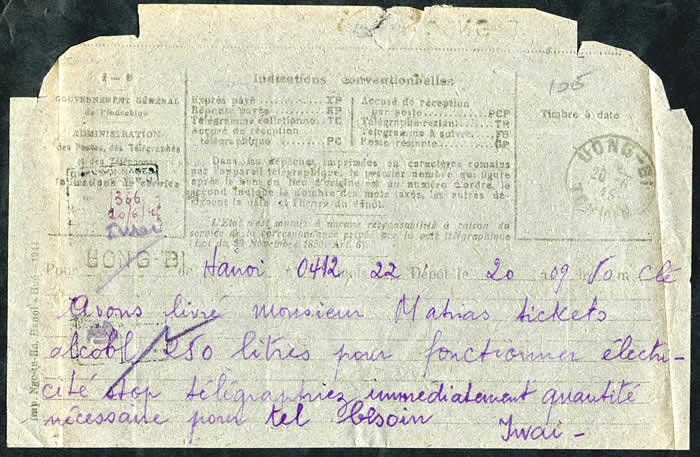 1-9
GOUVERNEMENT GÉNÉRAL
de l'Indochine
ADMINISTRATION
des Postes, des Télégraphes
et des Téléphones
1366
20/6/45
Indications conventionnelles
Exprès payé XP
Réponse payée RP
Télégramme collationné TC
Accusé de réception
télégraphique PC
Accusé de réception
par poste PCP
Télégraphe restant TR
Télégramme à suivre FS
Poste restante GP
Dans les dépêches imprimées en caractères romains
par l'appareil télégraphique, le premier nombre qui figure
après le nom du lieu d'origine est un numéro d'ordre, le
second indique le nombre des mots taxés, les autres dé-
signent la date et l'heure du dépôt.
L'État n'est soumis à aucune responsabilité à raison du
service de la correspondance privée par la voie télégraphique
(Loi du 29 Novembre 1850, Art. 6).
105
Timbre à date
UONG-BI
UONG-BI
de Hanoi 0412 22 Dépôt le 20 09 50 m clé
Avons livré monsieur Matras tickets
alcool 250 litres pour fonctionner électri-
cité stop télégraphiez immédiatement quantité
nécessaire pour tel besoin Iwai -
Imp. Ngo-tu-Ha, Hanoi